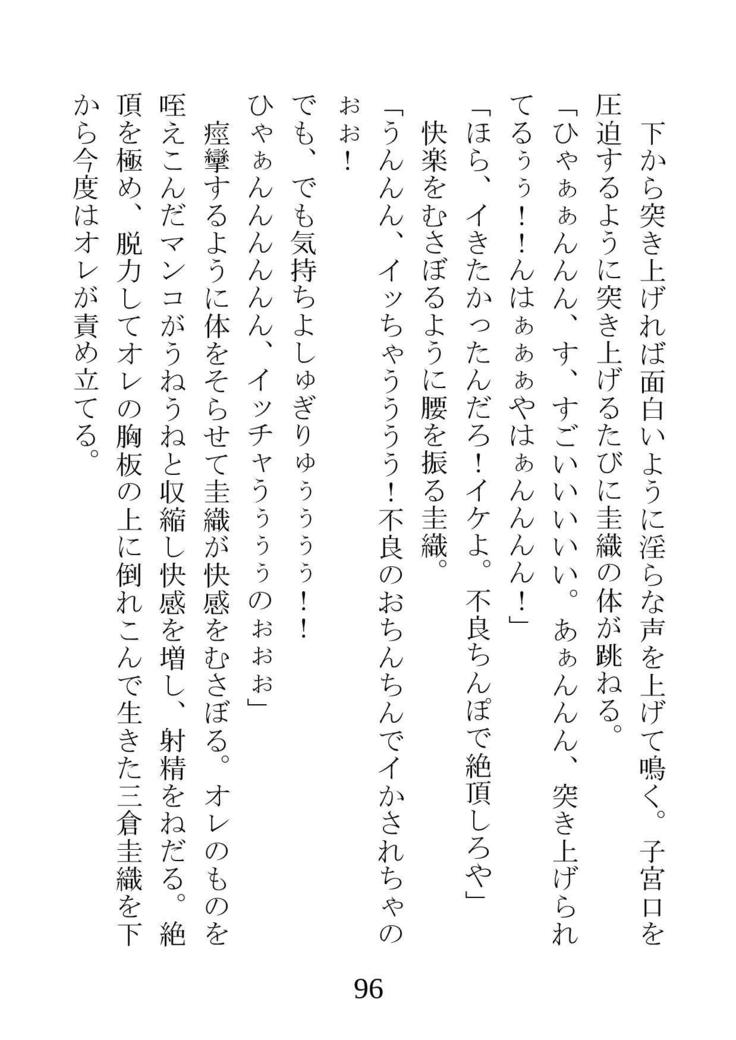 下から突き上げれば面白いように淫らな声を上げて鳴く。子宮口を
圧迫するように突き上げるたびに圭織の体が跳ねる。
「ひゃぁぁんんん、す、すごいいいいい。あぁんんん、突き上げられ
てるぅぅ！！んはぁぁぁやはぁんんんん！」
「ほら、イきたかったんだろ！イケよ。不良ちんぽで絶頂しろや」
快楽をむさぼるように腰を振る圭織。
「うんんん、イッちゃうううう！不良のおちんちんでイかされちゃの
ぉぉ！
でも、でも気持ちよしゅぎりゅぅぅぅぅ！！
ひゃぁんんんんんん、イッチャうぅぅぅのぉぉぉ」
痙攣するように体をそらせて圭織が快感をむさぼる。オレのものを
咥えこんだマンコがうねうねと収縮し快感を増し、射精をねだる。絶
頂を極め、脱力してオレの胸板の上に倒れこんで生きた三倉圭織を下
から今度はオレが責め立てる。
96